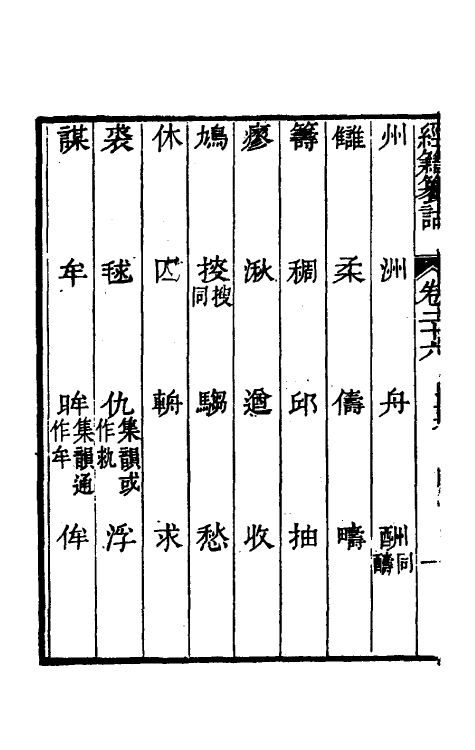 經籍籑詁 卷二十六 一
州 洲 舟 酬同醻
讎 柔 儔 疇
籌 稠 邱 抽
瘳 湫 遒 收
鳩 搜同 騶 愁
休 囚 輈 求
裘 毬 仇集韻或作執 浮
謀 牟 眸集韻通作牟 侔